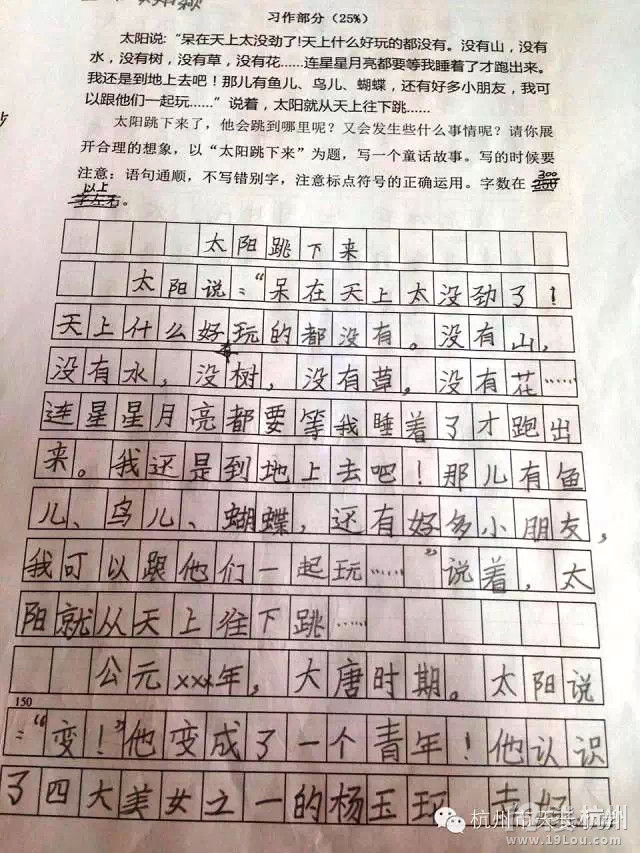 习作部分（25%）
太阳说:"呆在天上太没劲了!天上什么好玩的都没有。没有山，没有
水，没有树，没有草，没有花……连星星月亮都要等我睡着了才跑出来。
我还是到地上去吧！那儿有鱼儿、鸟儿、蝴蝶，还有好多小朋友，我可
以跟他们一起玩……"说着，太阳就从天上往下跳……
太阳跳下来了，他会跳到哪里呢？又会发生些什么事情呢？请你展
开合理的想象，以"太阳跳下来"为题，写一个童话故事。写的时候要
注意：语句通顺，不写错别字，注意标点符号的正确运用。字数在 300
以上。
太阳跳下来
太阳说："呆在天上太没劲了！
天上什么好玩的都没有。没有山，
没有水，没有树，没有草，没有花……
连星星月亮都要等我睡着了才跑出
来。我还是到地上去吧！那儿有鱼
儿、鸟儿、蝴蝶，还有好多小朋友，
我可以跟他们一起玩……"说着，太
阳就从天上往下跳……
公元xxx年，大唐时期。太阳说
150
："变！"他变成了一个青年！他认识
了四大美女之一的杨玉环，幸好
杭州
www.19lou.com